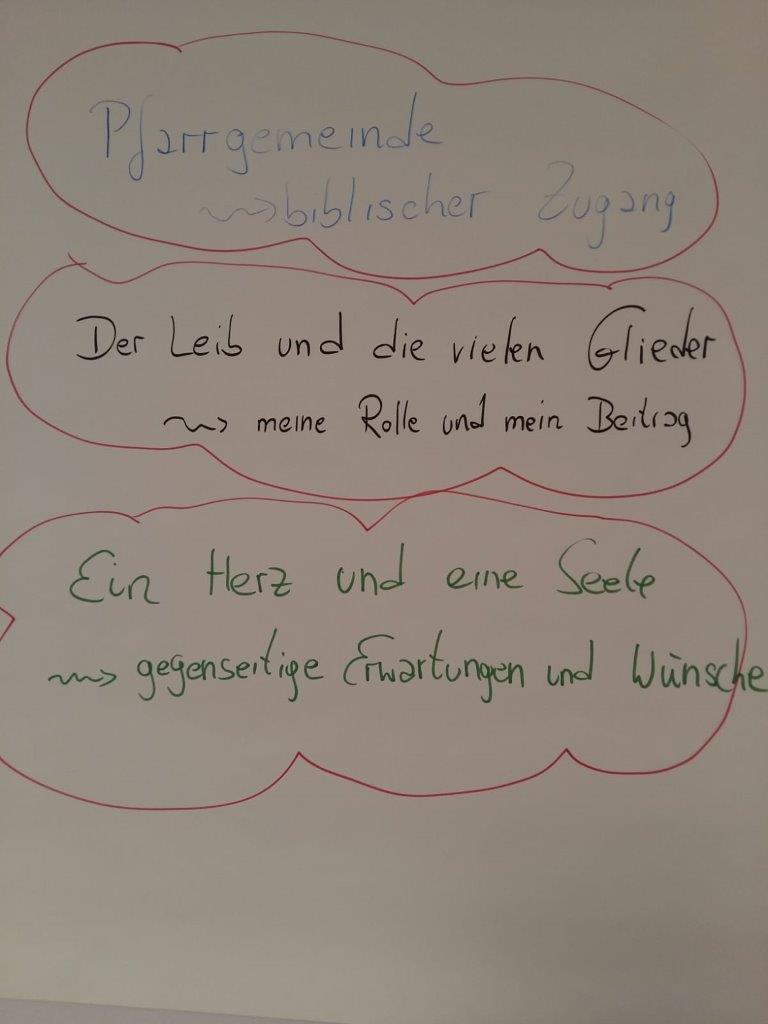 Pfarrgemeinde
⇝ biblischer Zugang
Der Leib und die vielen Glieder
⇝ meine Rolle und mein Beitrag
Ein Herz und eine Seele
⇝ gegenseitige Erwartungen und Wünsche